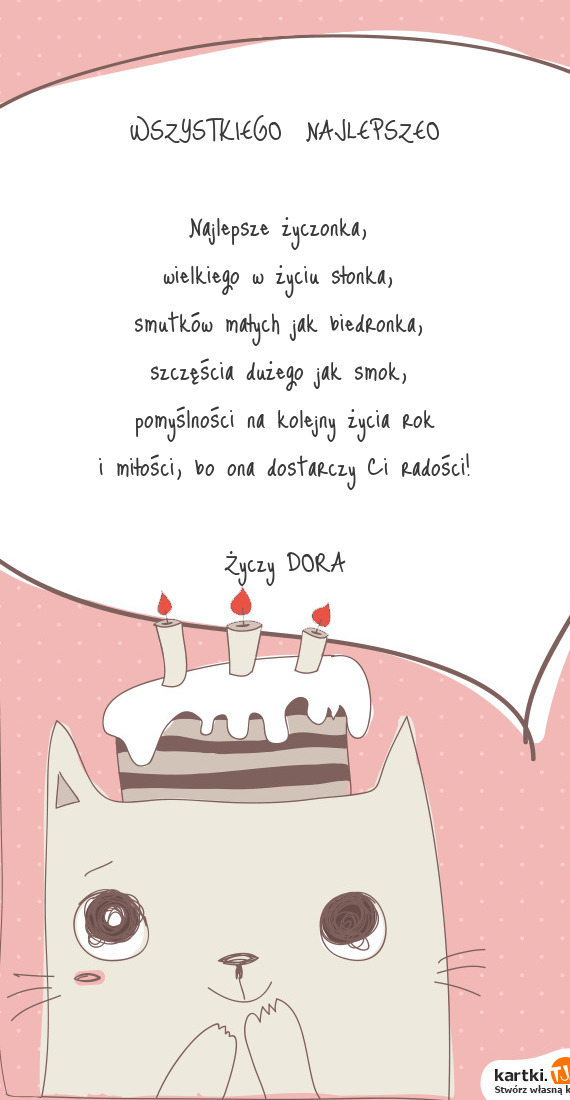 WSZYSTKIEGO NAJLEPSZEO
Najlepsze życzonka,
wielkiego w życiu słonka,
smutków małych jak biedronka,
szczęścia dużego jak smok,
pomyślności na kolejny życia rok
i miłości, bo ona dostarczy Ci radości!
Życzy DORA
kartki.TJ
Stwórz własną k